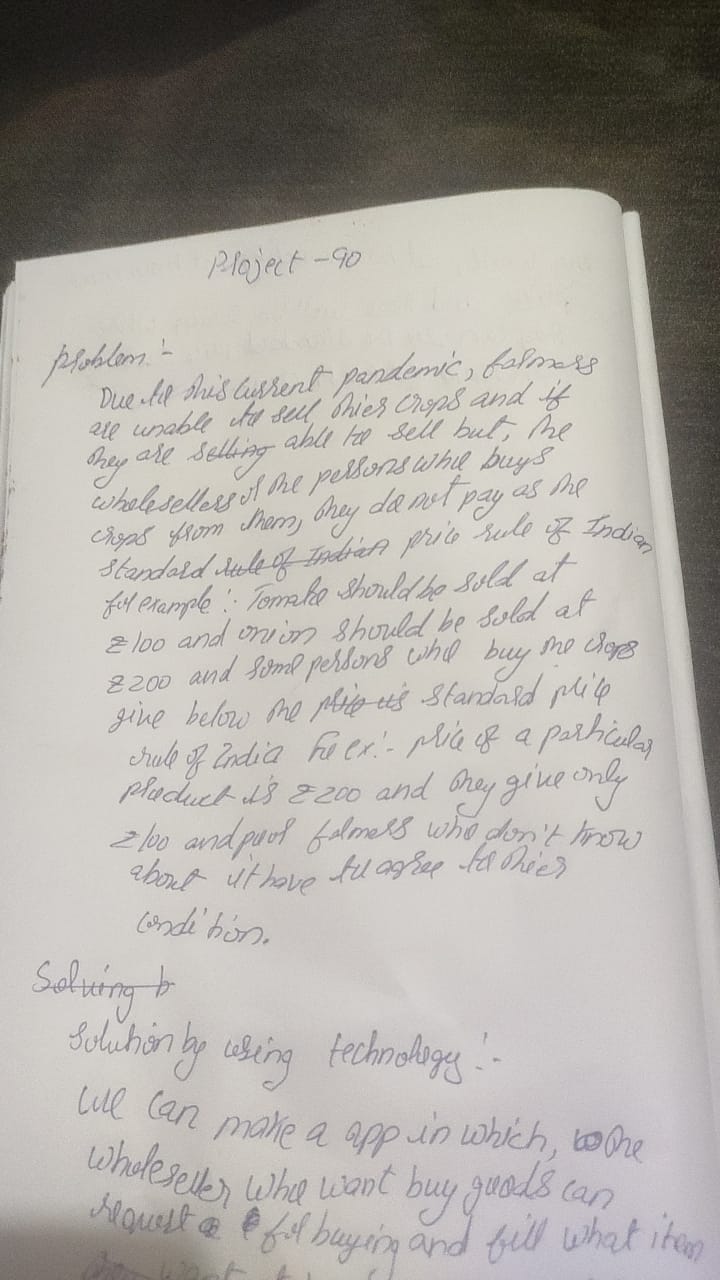 Project -90
problem :-
Due to this current pandemic, farmers
are unable to sell thier crops and if
they are selling able to sell but, the
wholesellers of the persons who buys
crops from them, they do not pay as the
standard rule of Indian price rule of Indian
for example :- Tomato should be sold at
₹100 and onion should be sold at
₹200 and some persons who buy the crops
give below the price is standard price
rule of India For ex:- price of a particular
product is ₹200 and they give only
₹100 and poor farmers who don't know
about it have to agree to thier
condition.
Solving b
Solution by using technology :-
we can make a app in which, the
wholeseller who want buy goods can
request for buying and fill what item
want